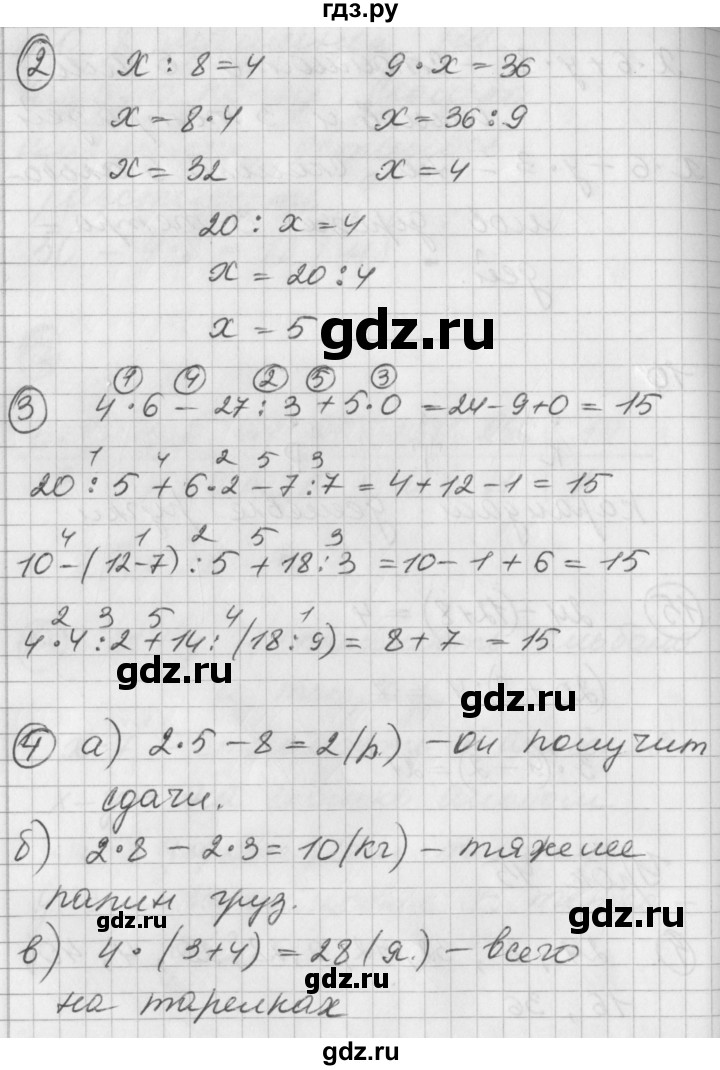 гдз.ру
2 x : 8 = 4 9 · x = 36
x = 8 · 4 x = 36 : 9
x = 32 x = 4
20 : x = 4
x = 20 : 4
x = 5
gdz.ru
1 4 2 5 3
3 4 · 6 - 27 : 3 + 5 · 0 = 24 - 9 + 0 = 15
1 4 2 5 3
20 : 5 + 6 · 2 - 7 : 7 = 4 + 12 - 1 = 15
4 1 2 5 3
10 - (12 - 7) : 5 + 18 : 3 = 10 - 1 + 6 = 15
2 3 5 4 1
4 · 4 : 2 + 14 : (18 : 9) = 8 + 7 = 15
gdz.ru
gdz.ru
4 а) 2 · 5 - 8 = 2 (р.) - он получит
сдачи.
б) 2 · 8 - 2 · 3 = 10 (кг) - тяжелее
папин груз.
gdz.ru
gdz.ru
в) 4 · (3 + 4) = 28 (я.) - всего
на тарелках
gdz.ru
gdz.ru